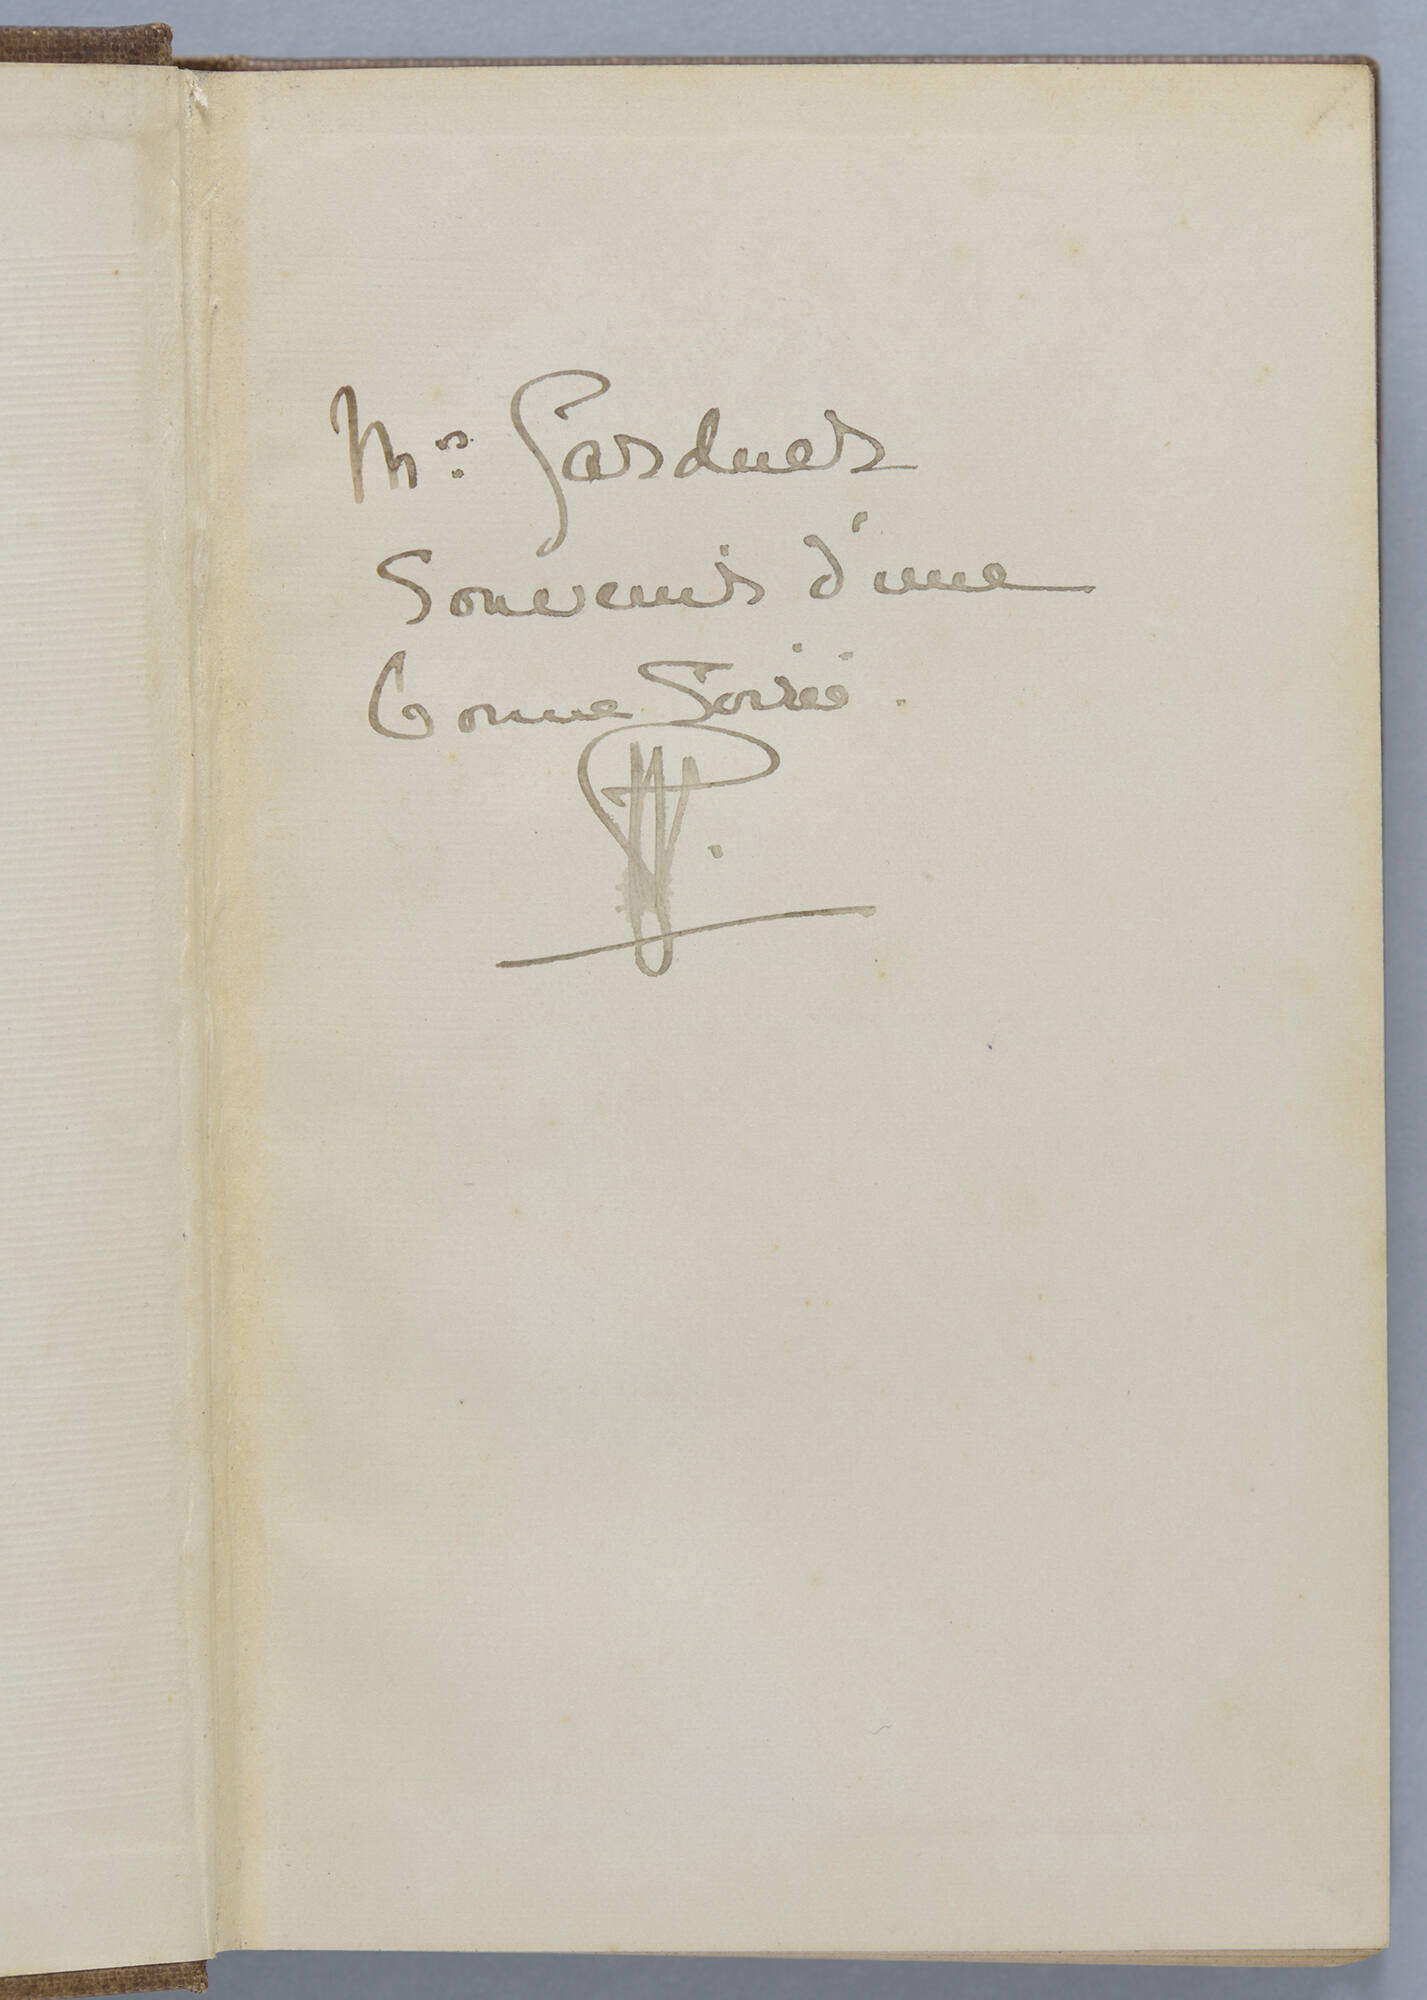 Mrs: Gardner
Souvenir d'une
bonne Soirée.